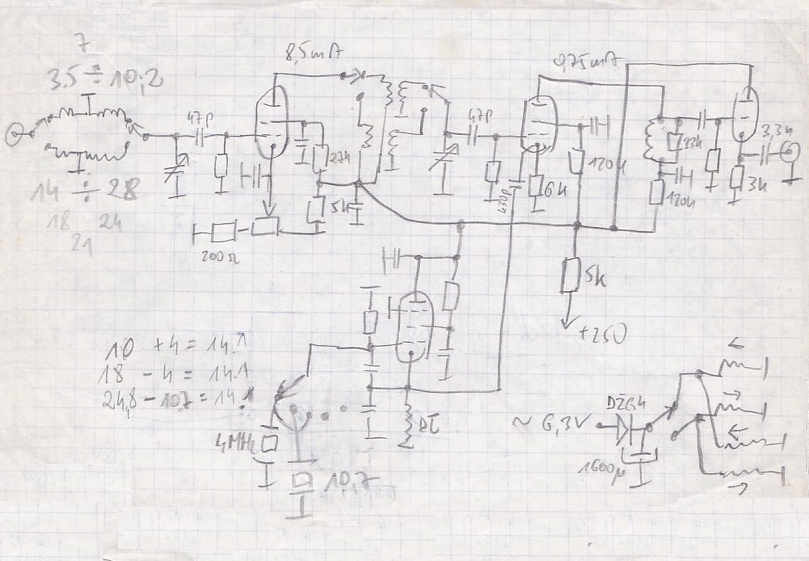 7
3.5 ÷ 10,2
8,5mA
0,75mA
47p
47p
3,3n
22k
120k
33k
6k
430p
3k
120k
5k
14 ÷ 28
18 24
21
200Ω
5k
+250
10 + 4 = 14.1
18 - 4 = 14.1
24,8 - 10,7 = 14.1
4MHz
10,7
DŁ
~ 6,3V
DZG4
1600μ